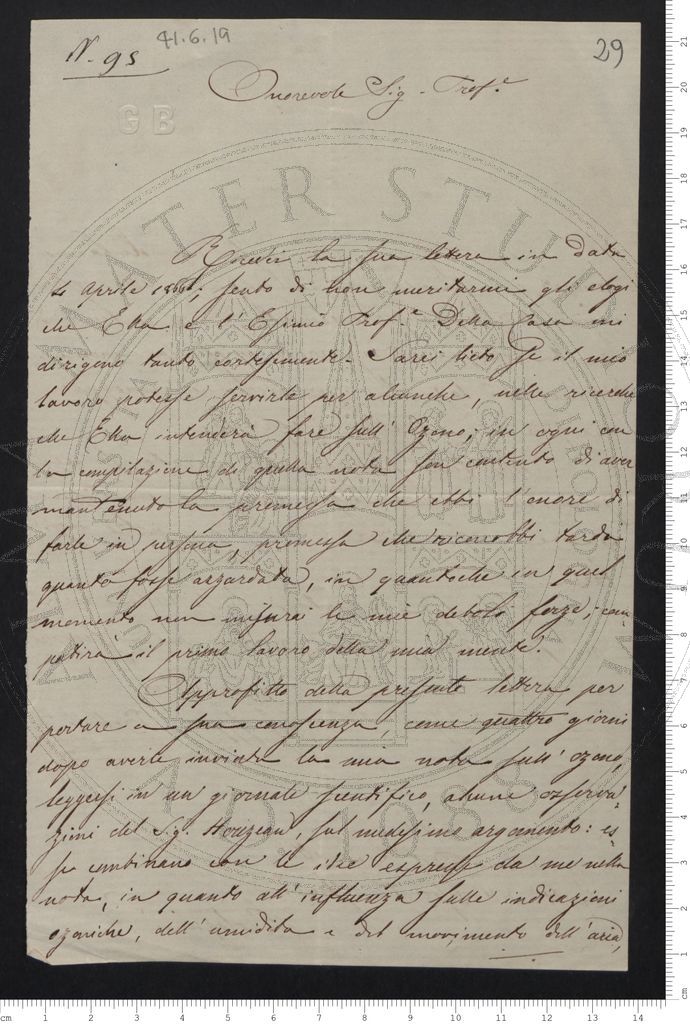 N. 95
41.6.19
29
GB
Onorevole Sig. Prof.e
Ricevei la sua lettera in data
4 Aprile; sento di non meritarmi gli elogi
che Ella e l'Esimio Prof.e Della Casa mi
dirigono tanto cortesemente. Sarei lieto se il mio
lavoro potesse servirle per alcunche, nelle ricerche
che Ella intenderà fare sull'Ozono; in ogni con
la compilazione di quella nota son contento di aver
mantenuto la promessa che ebbi l'onore di
farle in persona, promessa che riconobbi tardi
quanto fosse azzardata, in quantoche in quel
momento non misurai le mie debole forze; com-
patirà il primo lavoro della mia mente.
Approfitto della presente lettera per
portare a sua conoscenza, come quattro giorni
dopo averle inviata la mia nota sull'ozono,
leggessi in un giornale scientifico, alcune osserva-
zioni del Sig. Houzeau, sul medesimo argomento: es-
se combinano con le idee espresse da me nella
nota, in quanto all'influenza sulle indicazioni
ozoniche, dell'umidità e del movimento dell'aria,
ALMA MATER STUDIORUM
A.D. 1088